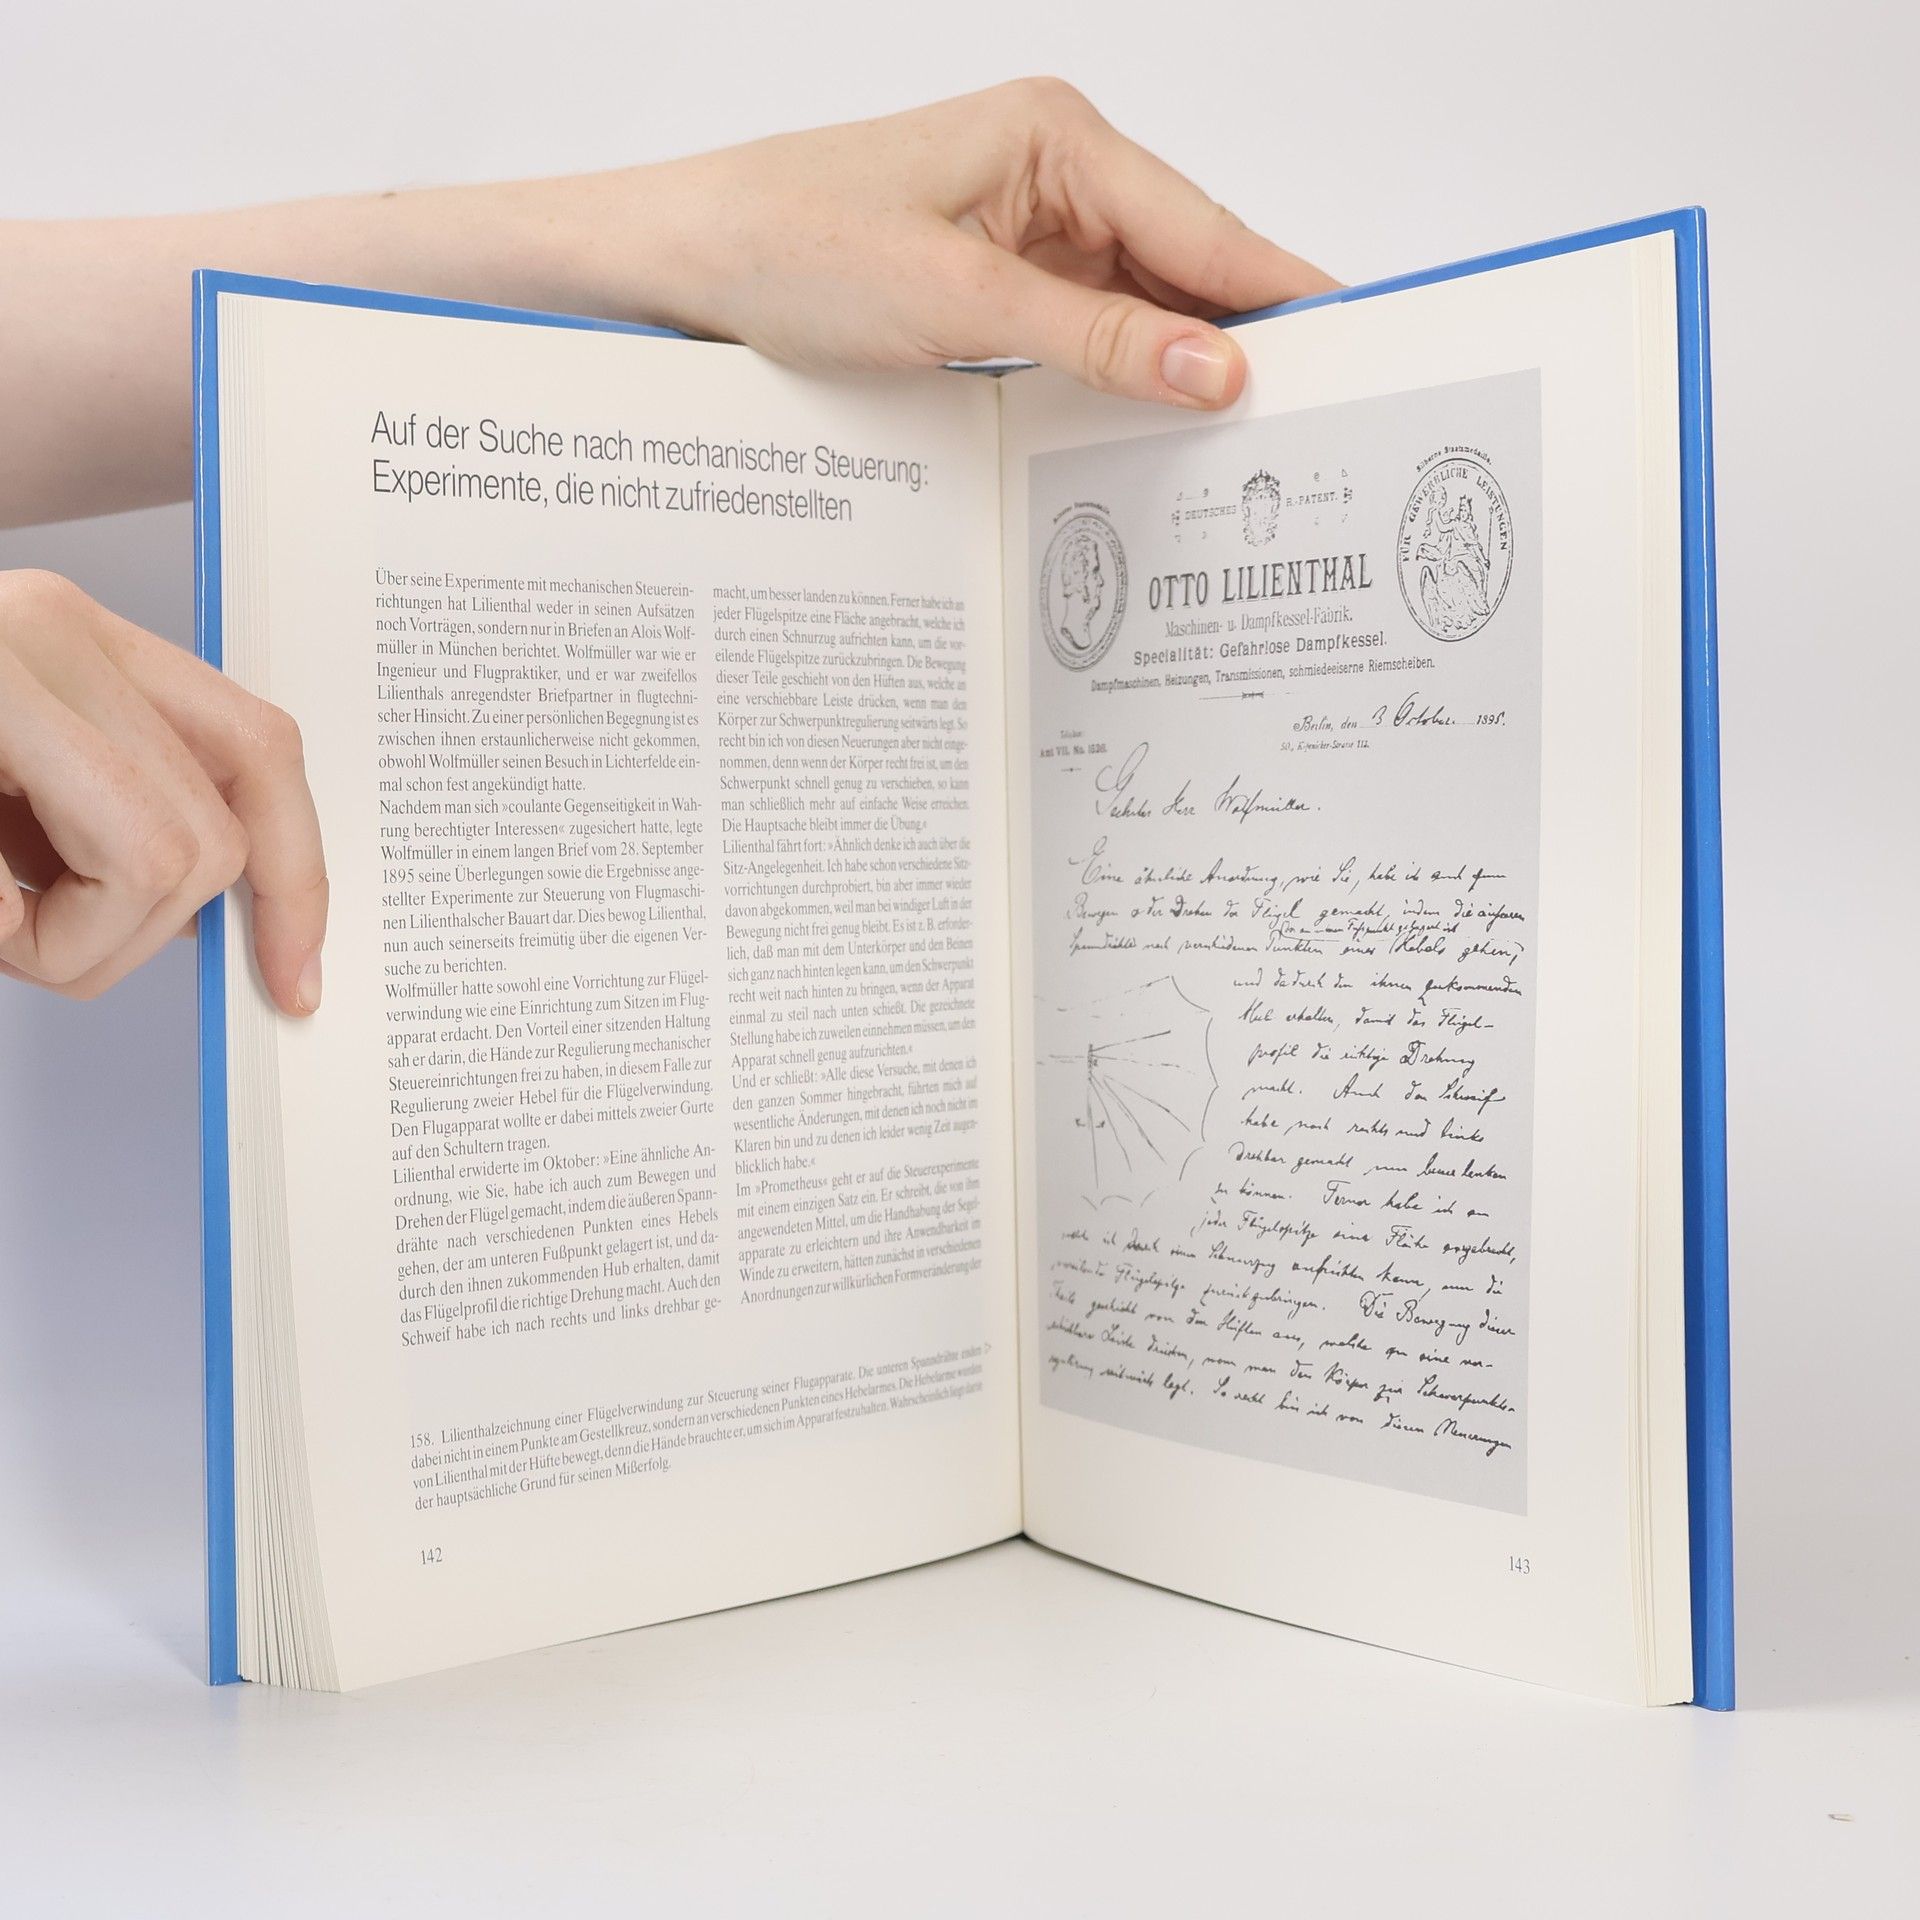 Auf der Suche nach mechanischer Steuerung:
Experimente, die nicht zufriedenstellten
Über seine Experimente mit mechanischen Steuerein-
richtungen hat Lilienthal weder in seinen Aufsätzen
noch Vorträgen, sondern nur in Briefen an Alois Wolf-
müller in München berichtet. Wolfmüller war wie er
Ingenieur und Flugpraktiker, und er war zweifellos
Lilienthals anregendster Briefpartner in flugtechni-
scher Hinsicht. Zu einer persönlichen Begegnung ist es
zwischen ihnen erstaunlicherweise nicht gekommen,
obwohl Wolfmüller seinen Besuch in Lichterfelde ein-
mal schon fest angekündigt hatte.
Nachdem man sich »coulante Gegenseitigkeit in Wah-
rung berechtigter Interessen« zugesichert hatte, legte
Wolfmüller in einem langen Brief vom 28. September
1895 seine Überlegungen sowie die Ergebnisse ange-
stellter Experimente zur Steuerung von Flugmaschi-
nen Lilienthalscher Bauart dar. Dies bewog Lilienthal,
nun auch seinerseits freimütig über die eigenen Ver-
suche zu berichten.
Wolfmüller hatte sowohl eine Vorrichtung zur Flügel-
verwindung wie eine Einrichtung zum Sitzen im Flug-
apparat erdacht. Den Vorteil einer sitzenden Haltung
sah er darin, die Hände zur Regulierung mechanischer
Steuereinrichtungen frei zu haben, in diesem Falle zur
Regulierung zweier Hebel für die Flügelverwindung.
Den Flugapparat wollte er dabei mittels zweier Gurte
auf den Schultern tragen.
Lilienthal erwiderte im Oktober: »Eine ähnliche An-
ordnung, wie Sie, habe ich auch zum Bewegen und
Drehen der Flügel gemacht, indem die äußeren Spann-
drähte nach verschiedenen Punkten eines Hebels
gehen, der am unteren Fußpunkt gelagert ist, und da-
durch den ihnen zukommenden Hub erhalten, damit
das Flügelprofil die richtige Drehung macht. Auch den
Schweif habe ich nach rechts und links drehbar ge-
macht, um besser landen zu können. Ferner habe ich an
jeder Flügelspitze eine Fläche angebracht, welche ich
durch einen Schnurzug aufrichten kann, um die vor-
eilende Flügelspitze zurückzubringen. Die Bewegung
dieser Teile geschieht von den Hüften aus, welche an
eine verschiebbare Leiste drücken, wenn man den
Körper zur Schwerpunktregulierung seitwärts legt. So
recht bin ich von diesen Neuerungen aber nicht einge-
nommen, denn wenn der Körper recht frei ist, um den
Schwerpunkt schnell genug zu verschieben, so kann
man schließlich mehr auf einfache Weise erreichen.
Die Hauptsache bleibt immer die Übung.«
Lilienthal fährt fort: »Ähnlich denke ich auch über die
Sitz-Angelegenheit. Ich habe schon verschiedene Sitz-
vorrichtungen durchprobiert, bin aber immer wieder
davon abgekommen, weil man bei windiger Luft in der
Bewegung nicht frei genug bleibt. Es ist z. B. erforder-
lich, daß man mit dem Unterkörper und den Beinen
sich ganz nach hinten legen kann, um den Schwerpunkt
recht weit nach hinten zu bringen, wenn der Apparat
einmal zu steil nach unten schießt. Die gezeichnete
Stellung habe ich zuweilen einnehmen müssen, um den
Apparat schnell genug aufzurichten.«
Und er schließt: »Alle diese Versuche, mit denen ich
den ganzen Sommer hingebracht, führten mich auf
wesentliche Änderungen, mit denen ich noch nicht im
Klaren bin und zu denen ich leider wenig Zeit augen-
blicklich habe.«
Im »Prometheus« geht er auf die Steuerexperimente
mit einem einzigen Satz ein. Er schreibt, die von ihm
angewendeten Mittel, um die Handhabung der Segel-
apparate zu erleichtern und ihre Anwendbarkeit im
Winde zu erweitern, hätten zunächst in verschiedenen
Anordnungen zur willkürlichen Formveränderung der
158. Lilienthalzeichnung einer Flügelverwindung zur Steuerung seiner Flugapparate. Die unteren Spanndrähte enden ▷
dabei nicht in einem Punkte am Gestellkreuz, sondern an verschiedenen Punkten eines Hebelarmes. Die Hebelarme wurden
von Lilienthal mit der Hüfte bewegt, denn die Hände brauchte er, um sich im Apparat festzuhalten. Wahrscheinlich liegt darin
der hauptsächliche Grund für seinen Mißerfolg.
142
Silberne Staatsmedaille.
FÜR GEWERBLICHE LEISTUNGEN
DEUTSCHES R.-PATENT.
OTTO LILIENTHAL
Maschinen- u. Dampfkessel-Fabrik.
Specialität: Gefahrlose Dampfkessel.
Dampfmaschinen, Heizungen, Transmissionen, schmiedeeiserne Riemscheiben.
Berlin, den 3 October 1895.
SO., Köpenicker-Strasse 113.
Amt VII. No. 1526.
Geehrter Herr Wolfmüller.
Eine ähnliche Anordnung, wie Sie, habe ich auch zum
Bewegen oder Drehen der Flügel gemacht, indem die äußeren
Spanndrähte nach verschiedenen Punkten eines Hebels gehen,
und dadurch den ihnen zukommenden
Hub erhalten, damit das Flügel-
profil die richtige Drehung
macht. Auch den Schweif
habe nach rechts und links
drehbar gemacht um besser lenken
zu können. Ferner habe ich an
jeder Flügelspitze eine Fläche angebracht,
welche ich durch einen Schnurzug aufrichten kann, um die
voreilende Flügelspitze zurückzubringen. Die Bewegung dieser
Theile geschieht von den Hüften aus, welche an eine ver-
schiebbare Leiste drücken, wenn man den Körper zur Schwerpunkts-
regulirung seitwärts legt. So recht bin ich von diesen Neuerungen
143